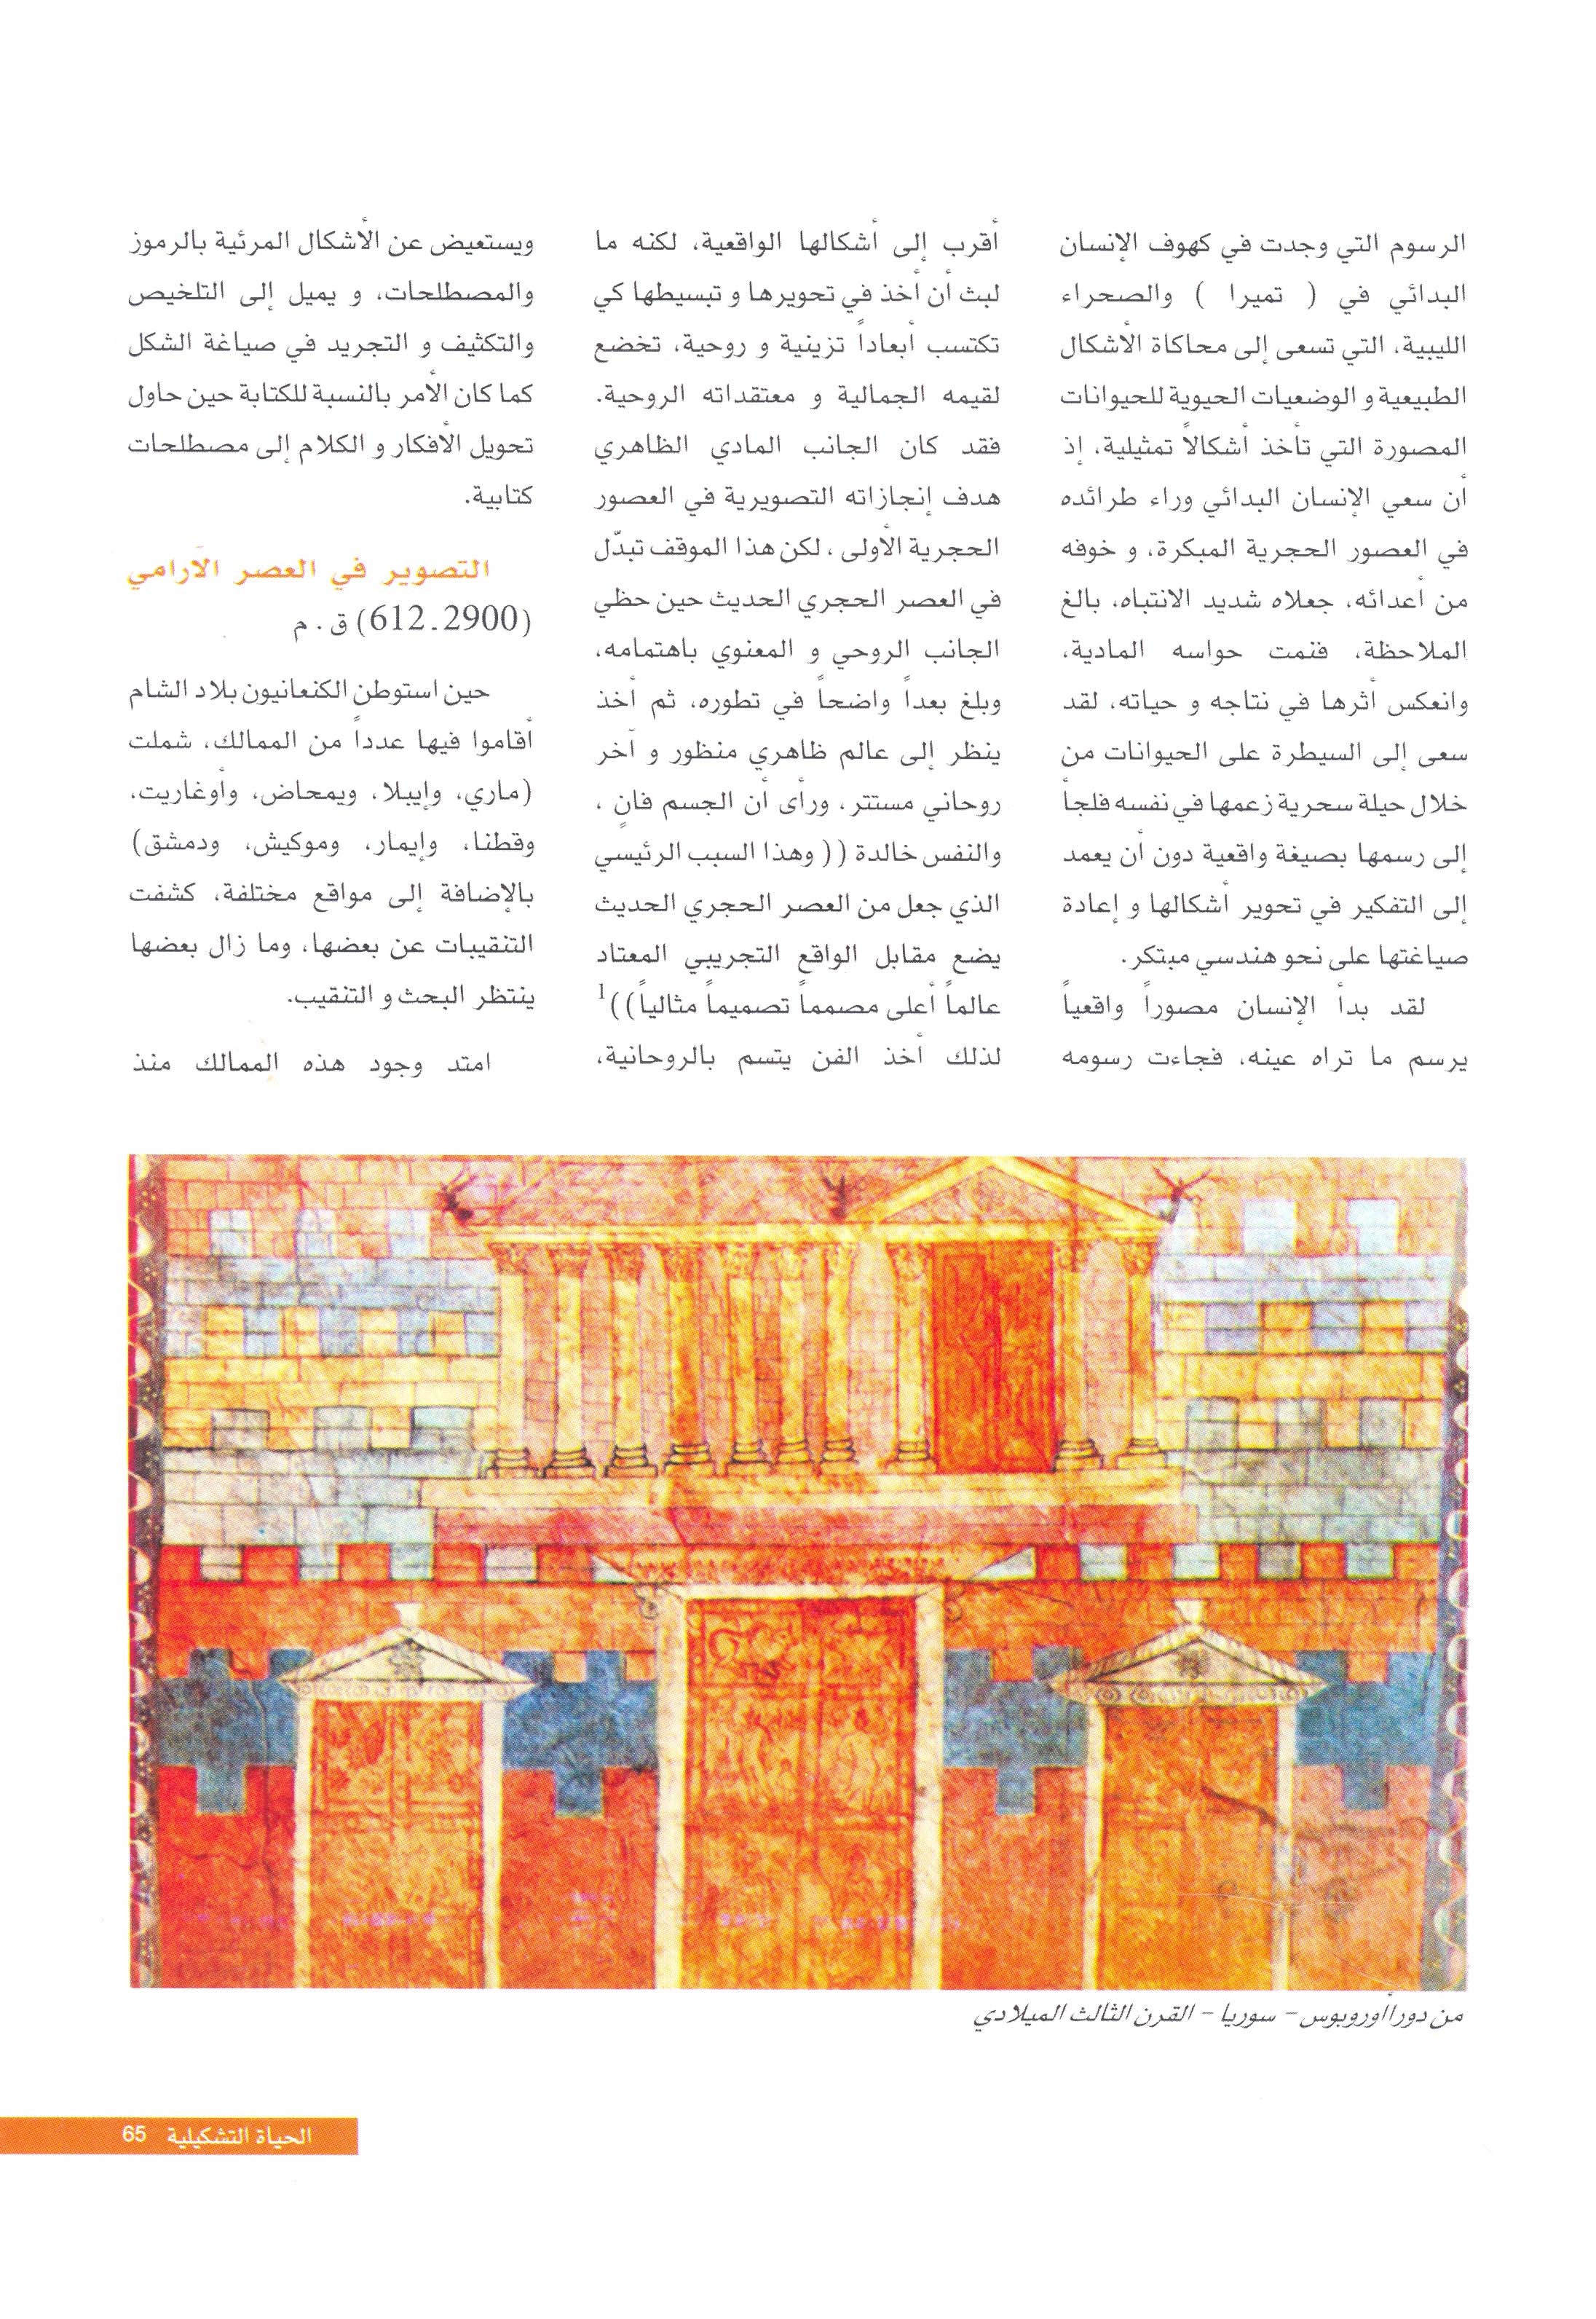 الرسوم التي وجدت في كهوف الإنسان
البدائي في ( تميرا ) والصحراء
الليبية، التي تسعى إلى محاكاة الأشكال
الطبيعية و الوضعيات الحيوية للحيوانات
المصورة التي تأخذ أشكالاً تمثيلية، إذ
أن سعي الإنسان البدائي وراء طرائده
في العصور الحجرية المبكرة، و خوفه
من أعدائه، جعلاه شديد الانتباه، بالغ
الملاحظة، فنمت حواسه المادية،
وانعكس أثرها في نتاجه و حياته، لقد
سعى إلى السيطرة على الحيوانات من
خلال حيلة سحرية زعمها في نفسه فلجأ
إلى رسمها بصيغة واقعية دون أن يعمد
إلى التفكير في تحوير أشكالها و إعادة
صياغتها على نحو هندسي مبتكر.
لقد بدأ الإنسان مصوراً واقعياً
يرسم ما تراه عينه، فجاءت رسومه
أقرب إلى أشكالها الواقعية، لكنه ما
لبث أن أخذ في تحويرها و تبسيطها كي
تكتسب أبعاداً تزينية و روحية، تخضع
لقيمه الجمالية و معتقداته الروحية.
فقد كان الجانب المادي الظاهري
هدف إنجازاته التصويرية في العصور
الحجرية الأولى ، لكن هذا الموقف تبدّل
في العصر الحجري الحديث حين حظي
الجانب الروحي و المعنوي باهتمامه،
وبلغ بعداً واضحاً في تطوره، ثم أخذ
ينظر إلى عالم ظاهري منظور و آخر
روحاني مستتر، ورأى أن الجسم فانٍ ،
والنفس خالدة (( وهذا السبب الرئيسي
الذي جعل من العصر الحجري الحديث
يضع مقابل الواقع التجريبي المعتاد
عالماً أعلى مصمماً تصميماً مثالياً))1
لذلك أخذ الفن يتسم بالروحانية،
ويستعيض عن الأشكال المرئية بالرموز
والمصطلحات، و يميل إلى التلخيص
والتكثيف و التجريد في صياغة الشكل
كما كان الأمر بالنسبة للكتابة حين حاول
تحويل الأفكار و الكلام إلى مصطلحات
كتابية.
التصوير في العصر الآرامي
(2900ـ612) ق . م
حين استوطن الكنعانيون بلاد الشام
أقاموا فيها عدداً من الممالك، شملت
(ماري، وإيبلا، ويمحاض، وأوغاريت،
وقطنا، وإيمار، وموكيش، ودمشق)
بالإضافة إلى مواقع مختلفة، كشفت
التنقيبات عن بعضها، وما زال بعضها
ينتظر البحث و التنقيب.
امتد وجود هذه الممالك منذ
من دورا أوروبوس - سوريا - القرن الثالث الميلادي
الحياة التشكيلية 65